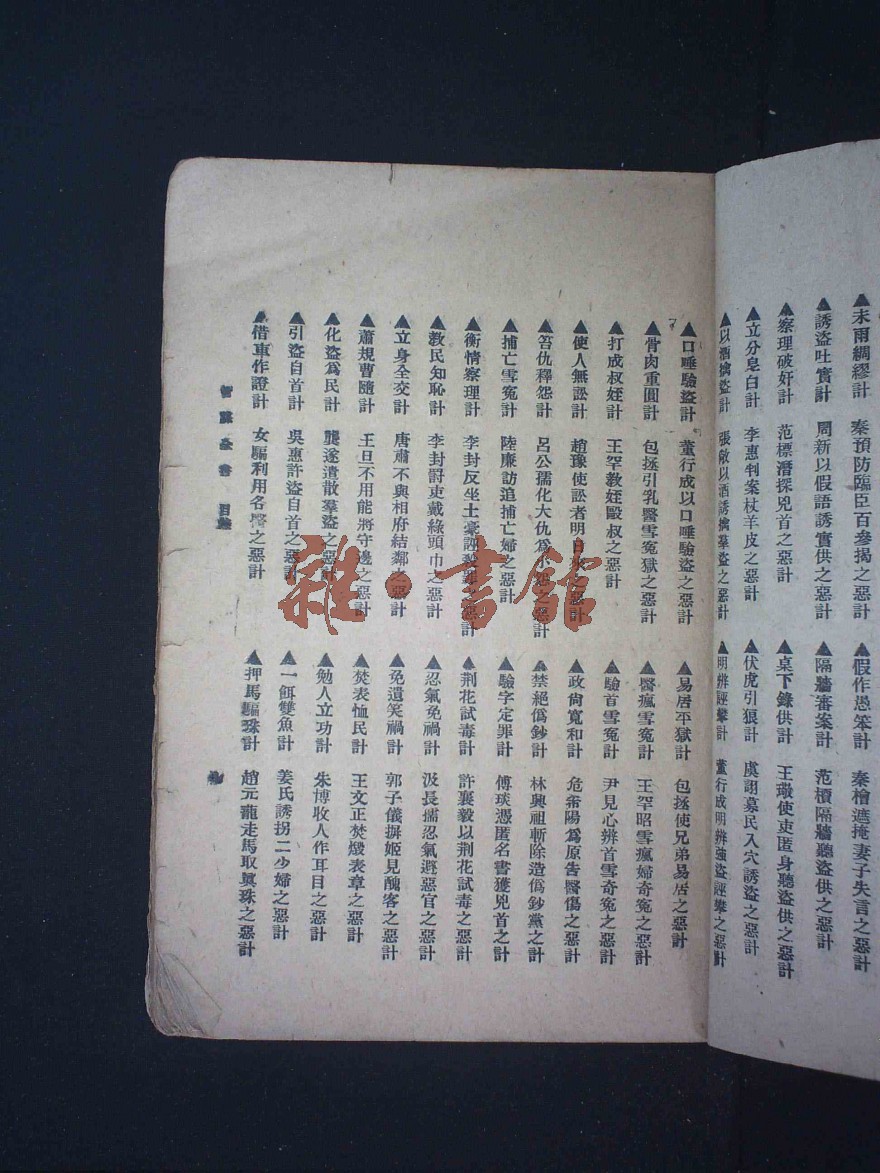 ▲未雨綢繆計　秦預防臨臣百參揭之惡計
▲誘盜吐實計　周新以假語誘實供之惡計
▲察理破奸計　范檟潛探兇首之惡計
▲立分皂白計　李惠判案杖羊皮之惡計
▲以酒擒盜計　張敞以酒誘擒羣盜之惡計
▲假作愚笨計　秦檜遮掩妻子失言之惡計
▲隔牆審案計　范檟隔牆聽盜供之惡計
▲桌下錄供計　王璥使吏匿身聽盜供之惡計
▲伏虎引狼計　虞詡募民入穴誘盜之惡計
▲明辨誣攀計　董行成明辨強盜誣攀之惡計
▲口唾驗盜計　董行成以口唾驗盜之惡計
▲骨肉重圓計　包拯引乳醫雪冤獄之惡計
▲打成叔姪計　王罕教姪毆叔之惡計
▲使人無訟計　趙豫使訟者明日來之惡計
▲笞仇釋怨計　呂公孺化大仇爲小怨之惡計
▲捕亡雪冤計　陸廉訪追捕亡婦之惡計
▲衡情察理計　李封反坐土豪之惡計
▲教民知恥計　李封罸吏戴綠頭巾之惡計
▲立身全交計　唐肅不與相府結鄰之惡計
▲蕭規曹隨計　王旦不用能將守邊之惡計
▲化盜爲民計　龔遂遣散羣盜之惡計
▲引盜自首計　吳惠許盜自首之惡計
▲借車作證計　女騙利用名醫之惡計
▲易居平獄計　包拯使兄弟易居之惡計
▲醫瘋雪冤計　王罕昭雪瘋婦奇冤之惡計
▲驗首雪冤計　尹見心辨首雪奇冤之惡計
▲政尙寬和計　危爲原吿醫傷之惡計
▲禁絕僞鈔計　林興祖斬除造僞鈔黨之計
▲驗字定罪計　傅琰憑匿名書獲兇首之計
▲荆花試毒計　許襄毅以荆花試毒之惡計
▲忍氣免禍計　汲長孺忍氣避惡官之惡計
▲免遺笑禍計　郭子儀摒姬見醜客之惡計
▲焚表恤民計　王文正焚燬表章之惡計
▲勉人立功計　朱博收人作耳目之惡計
▲一餌雙魚計　姜氏誘拐二少婦之惡計
▲押馬騙珠計　趙元龍走馬取眞珠之惡計
智謀全書　目錄
雜·書館